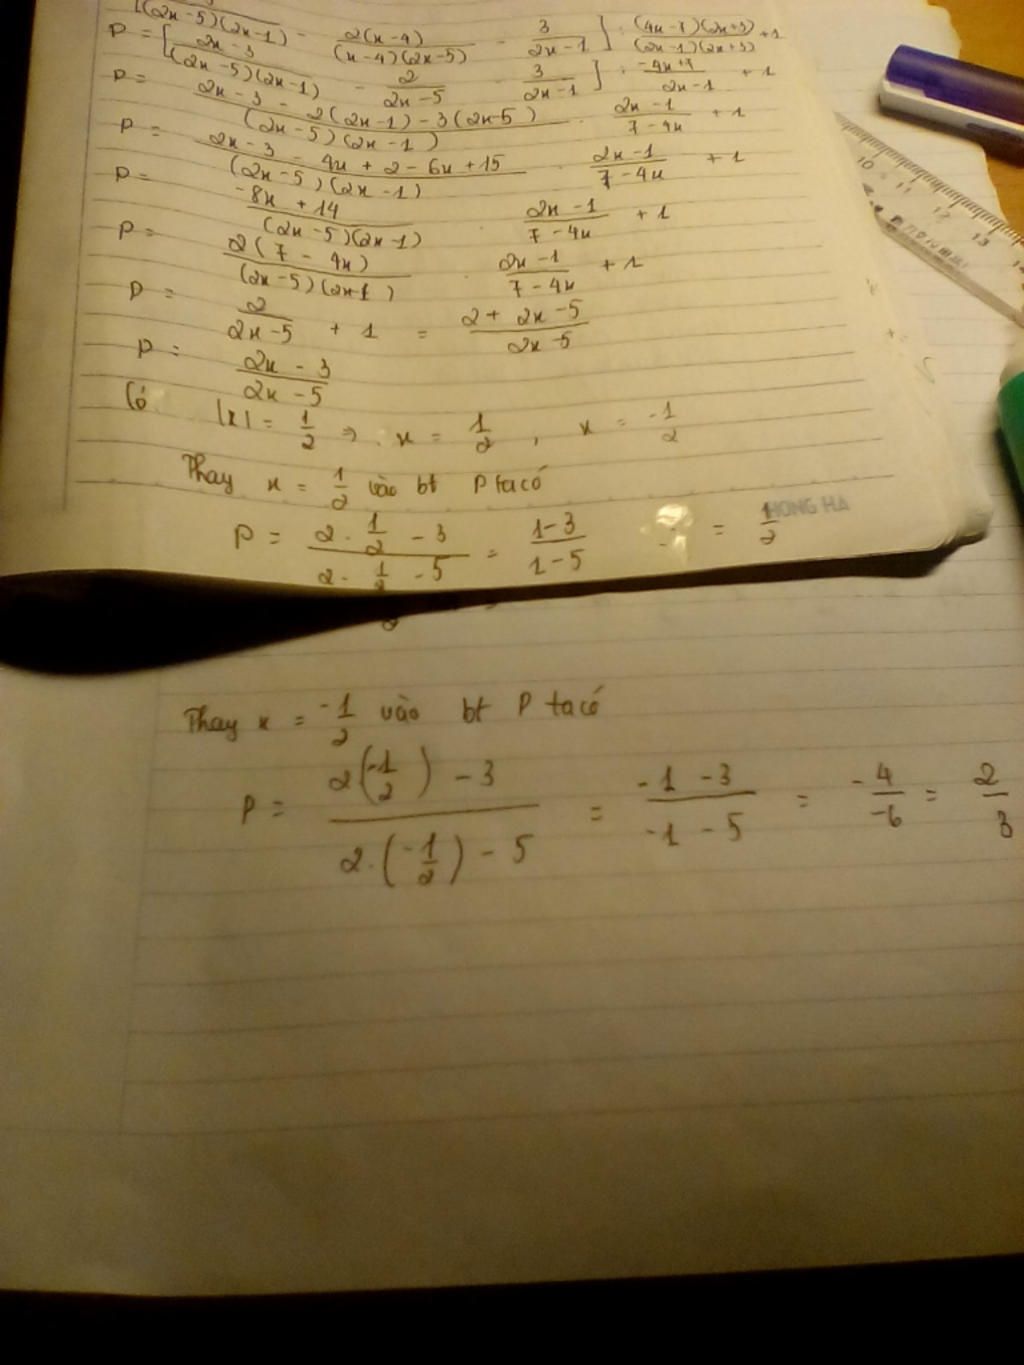 P = [ (2x-5)(2x-1) - 2(x-4)/(x-4)(2x-5) - 3/2x-1 ] : (2x-1)(2x+3) + 1
P = [ 2x-3/(2x-5)(2x-1) - 2/2x-5 - 3/2x-1 ] : -4x+7/2x-1 + 1
P = 2x-3 - 2(2x-1) - 3(2x-5)/(2x-5)(2x-1) . 2x-1/7-4x + 1
P = 2x-3 - 4x + 2 - 6x + 15/(2x-5)(2x-1) . 2x-1/7-4x + 1
P = -8x + 14/(2x-5)(2x-1) . 2x-1/7-4x + 1
P = 2(7 - 4x)/(2x-5)(2x-1) . 2x-1/7-4x + 1
P = 2/2x-5 + 1 = 2 + 2x-5/2x-5
P = 2x - 3/2x - 5
Có |x| = 1/2 => x = 1/2 , x = -1/2
Thay x = 1/2 vào bt P ta có
P = 2. 1/2 - 3/2. 1/2 - 5 = 1-3/1-5 = 1/2
HONG HA
Thay x = -1/2 vào bt P ta có
P = 2(-1/2) - 3/2.(-1/2) - 5 = -1 -3/-1 - 5 = -4/-6 = 2/3
10 11 12 13